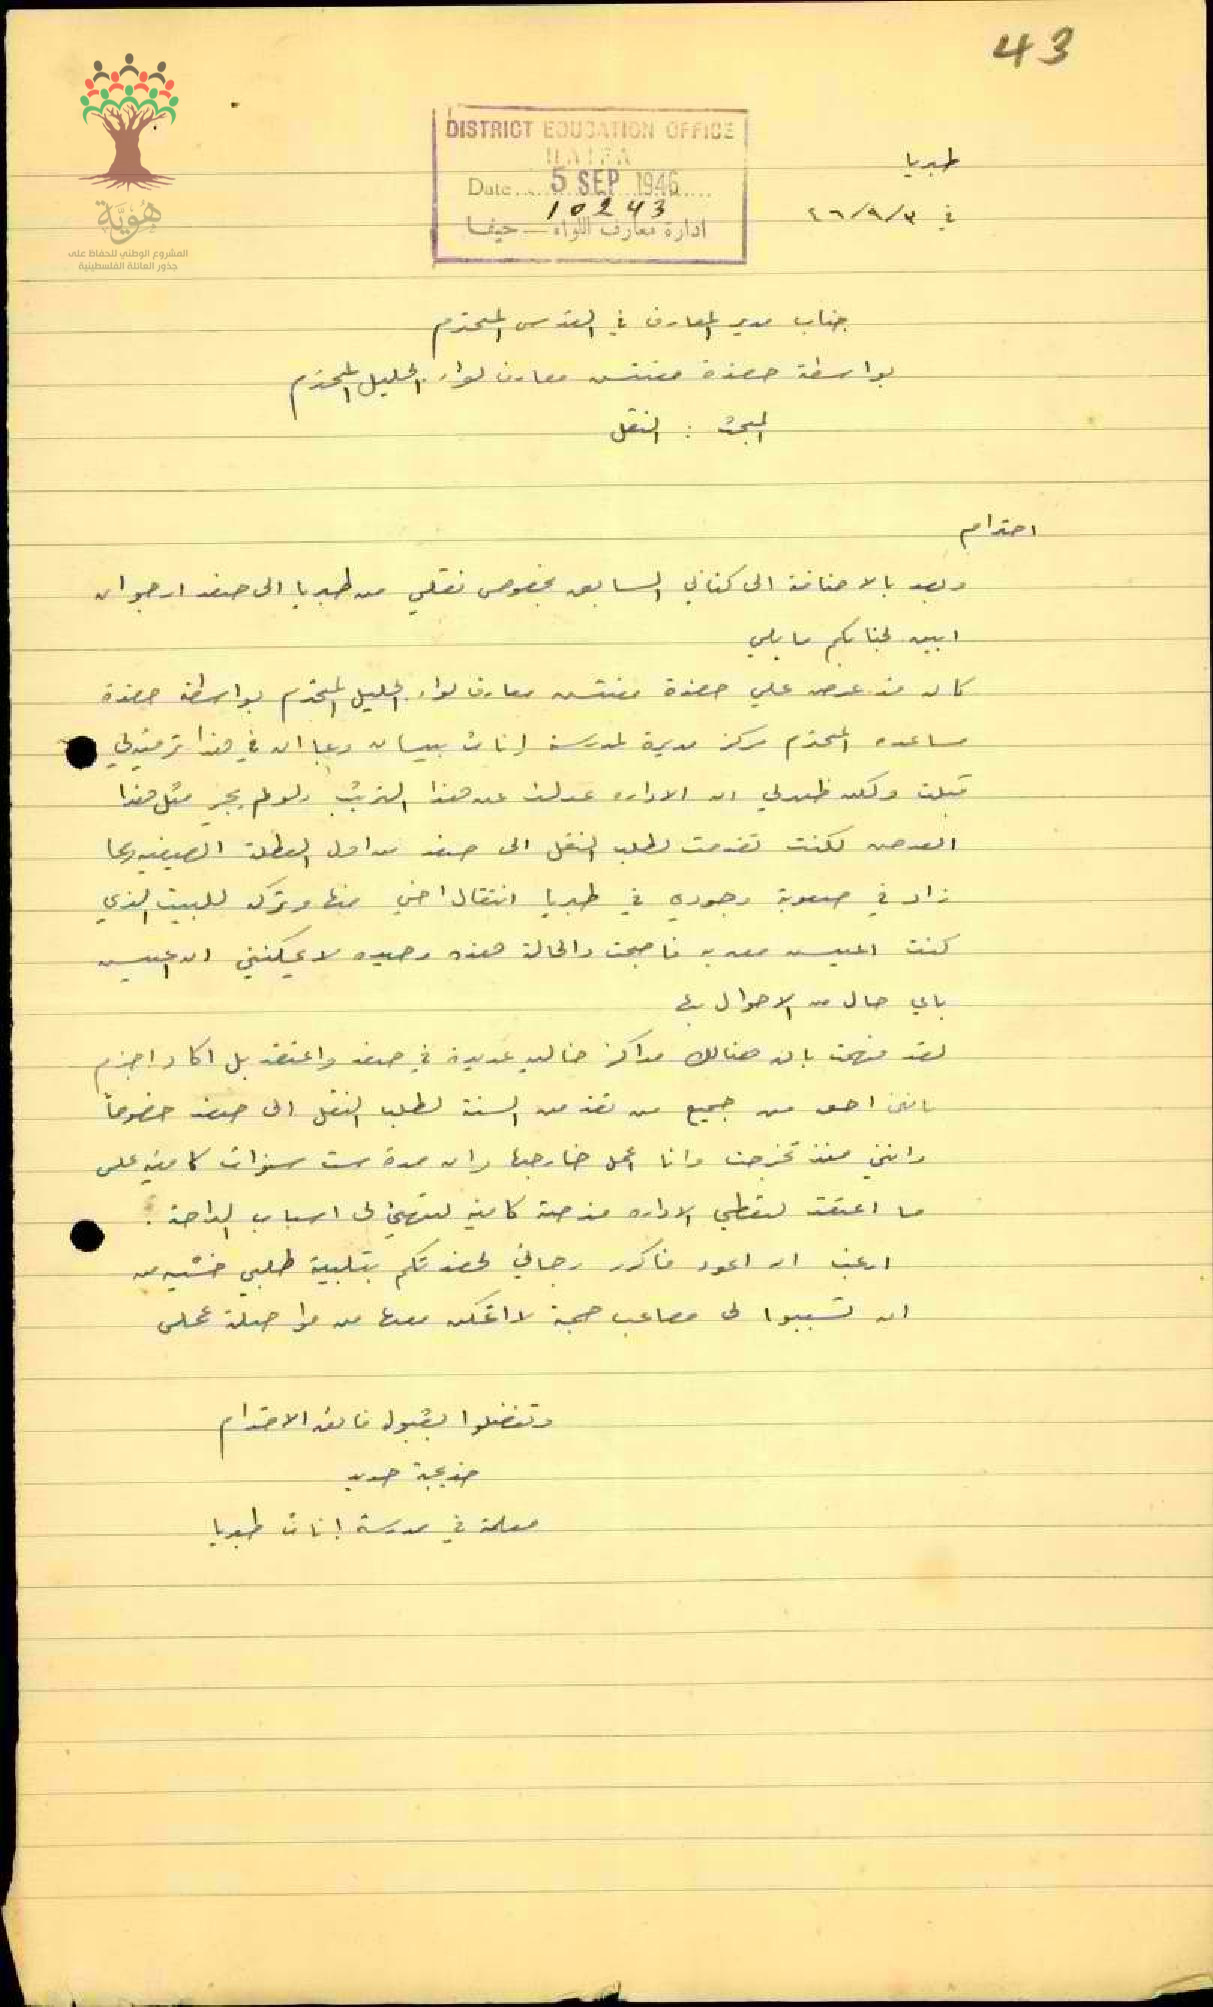 43
هُوِيَّة
المشروع الوطني للحفاظ على
جذور العائلة الفلسطينية
DISTRICT EDUCATION OFFICE
HAIFA
Date 5 SEP 1946
10243
ادارة معارف اللواء — حيفا
طبريا
في ٤٦/٩/٣
جناب مدير المعارف في القدس المحترم
بواسطة حضرة مفتش معارف لواء الجليل المحترم
المبحث : النقل
احترام
وبعد بالاضافة الى كتابي السابق بخصوص نقلي من طبريا الى صفد ارجو ان
ابين لجنابكم ما يلي
كان قد عرض علي حضرة مفتش معارف لواء الجليل المحترم بواسطة حضرة
مساعده المحترم مركز مديرة لمدرسة إناث بيسان وبما ان في هذا ترقية لي
قبلت ولكن ظهر لي ان الاداره عدلت عن هذا الترتيب ولو لم يجر مثل هذا
العرض لكنت تقدمت لطلب النقل الى صفد من اول العطلة الصيفيه ومما
زاد في صعوبة وجودي في طبريا انتقال اخي منها وتركه للبيت الذي
كنت اعيش معه به فاصبحت والحالة هذه وحيده لا يمكنني ان اعيش
باي حال من الاحوال بها
لقد فهمت بان هنالك مراكز خاليه عديدة في صفد واعتقد بل اكاد اجزم
بانني احق من جميع من تقدمن السنة لطلب النقل الى صفد خصوصاً
وانني منذ تخرجت وانا اعمل خارجها وان مدة ست سنوات كافية على
ما اعتقد لتعطي الاداره فرصة كافية لي اسباب الراحة .
ارغب ان اعود فاكرر رجائي لحضرتكم بتلبية طلبي خشيه من
ان تسببوا لي مصاعب جمة لا اتمكن معها من مواصلة عملي
وتفضلوا بقبول فائق الاحترام
خديجة حديد
معلمة في مدرسة إناث طبريا